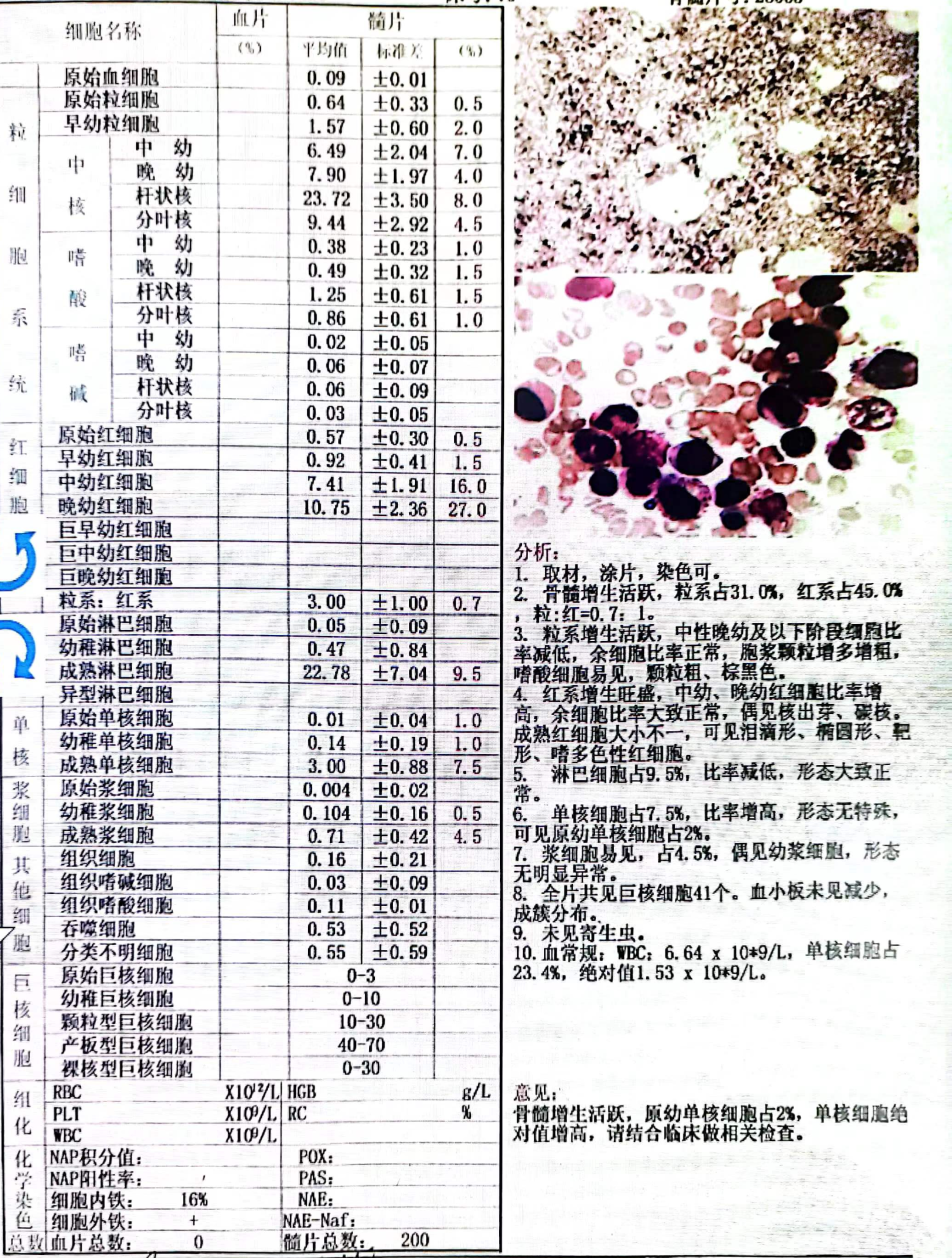 骨髓片号:
细胞名称 血片 髓片
(%) 平均值 标准差 (%)
粒细胞系统
原始血细胞 0.09 ±0.01
原始粒细胞 0.64 ±0.33 0.5
早幼粒细胞 1.57 ±0.60 2.0
中核
中 幼 6.49 ±2.04 7.0
晚 幼 7.90 ±1.97 4.0
杆状核 23.72 ±3.50 8.0
分叶核 9.44 ±2.92 4.5
嗜酸
中 幼 0.38 ±0.23 1.0
晚 幼 0.49 ±0.32 1.5
杆状核 1.25 ±0.61 1.5
分叶核 0.86 ±0.61 1.0
嗜碱
中 幼 0.02 ±0.05
晚 幼 0.06 ±0.07
杆状核 0.06 ±0.09
分叶核 0.03 ±0.05
红细胞
原始红细胞 0.57 ±0.30 0.5
早幼红细胞 0.92 ±0.41 1.5
中幼红细胞 7.41 ±1.91 16.0
晚幼红细胞 10.75 ±2.36 27.0
巨早幼红细胞
巨中幼红细胞
巨晚幼红细胞
粒系: 红系 3.00 ±1.00 0.7
原始淋巴细胞 0.05 ±0.09
幼稚淋巴细胞 0.47 ±0.84
成熟淋巴细胞 22.78 ±7.04 9.5
异型淋巴细胞
单核
原始单核细胞 0.01 ±0.04 1.0
幼稚单核细胞 0.14 ±0.19 1.0
成熟单核细胞 3.00 ±0.88 7.5
浆细胞
原始浆细胞 0.004 ±0.02
幼稚浆细胞 0.104 ±0.16 0.5
成熟浆细胞 0.71 ±0.42 4.5
其他细胞
组织细胞 0.16 ±0.21
组织嗜碱细胞 0.03 ±0.09
组织嗜酸细胞 0.11 ±0.01
吞噬细胞 0.53 ±0.52
分类不明细胞 0.55 ±0.59
巨核细胞
原始巨核细胞 0-3
幼稚巨核细胞 0-10
颗粒型巨核细胞 10-30
产板型巨核细胞 40-70
裸核型巨核细胞 0-30
组化
RBC X10¹²/L HGB g/L
PLT X10⁹/L RC %
WBC X10⁹/L
化学染色
NAP积分值: POX:
NAP阳性率: PAS:
细胞内铁: 16% NAE:
细胞外铁: + NAE-Naf:
总数 血片总数: 0 髓片总数: 200
分析:
1. 取材, 涂片, 染色可。
2. 骨髓增生活跃, 粒系占31.0%, 红系占45.0%
, 粒:红=0.7: 1。
3. 粒系增生活跃, 中性晚幼及以下阶段细胞比
率减低, 余细胞比率正常, 胞浆颗粒增多增粗,
嗜酸细胞易见, 颗粒粗、棕黑色。
4. 红系增生旺盛, 中幼、晚幼红细胞比率增
高, 余细胞比率大致正常, 偶见核出芽、碳核。
成熟红细胞大小不一, 可见泪滴形、椭圆形、靶
形、嗜多色性红细胞。
5. 淋巴细胞占9.5%, 比率减低, 形态大致正
常。
6. 单核细胞占7.5%, 比率增高, 形态无特殊,
可见原幼单核细胞占2%。
7. 浆细胞易见, 占4.5%, 偶见幼浆细胞, 形态
无明显异常。
8. 全片共见巨核细胞41个。血小板未见减少,
成簇分布。
9. 未见寄生虫。
10. 血常规: WBC: 6.64 x 10*9/L, 单核细胞占
23.4%, 绝对值1.53 x 10*9/L。
意见:
骨髓增生活跃, 原幼单核细胞占2%, 单核细胞绝
对值增高, 请结合临床做相关检查。